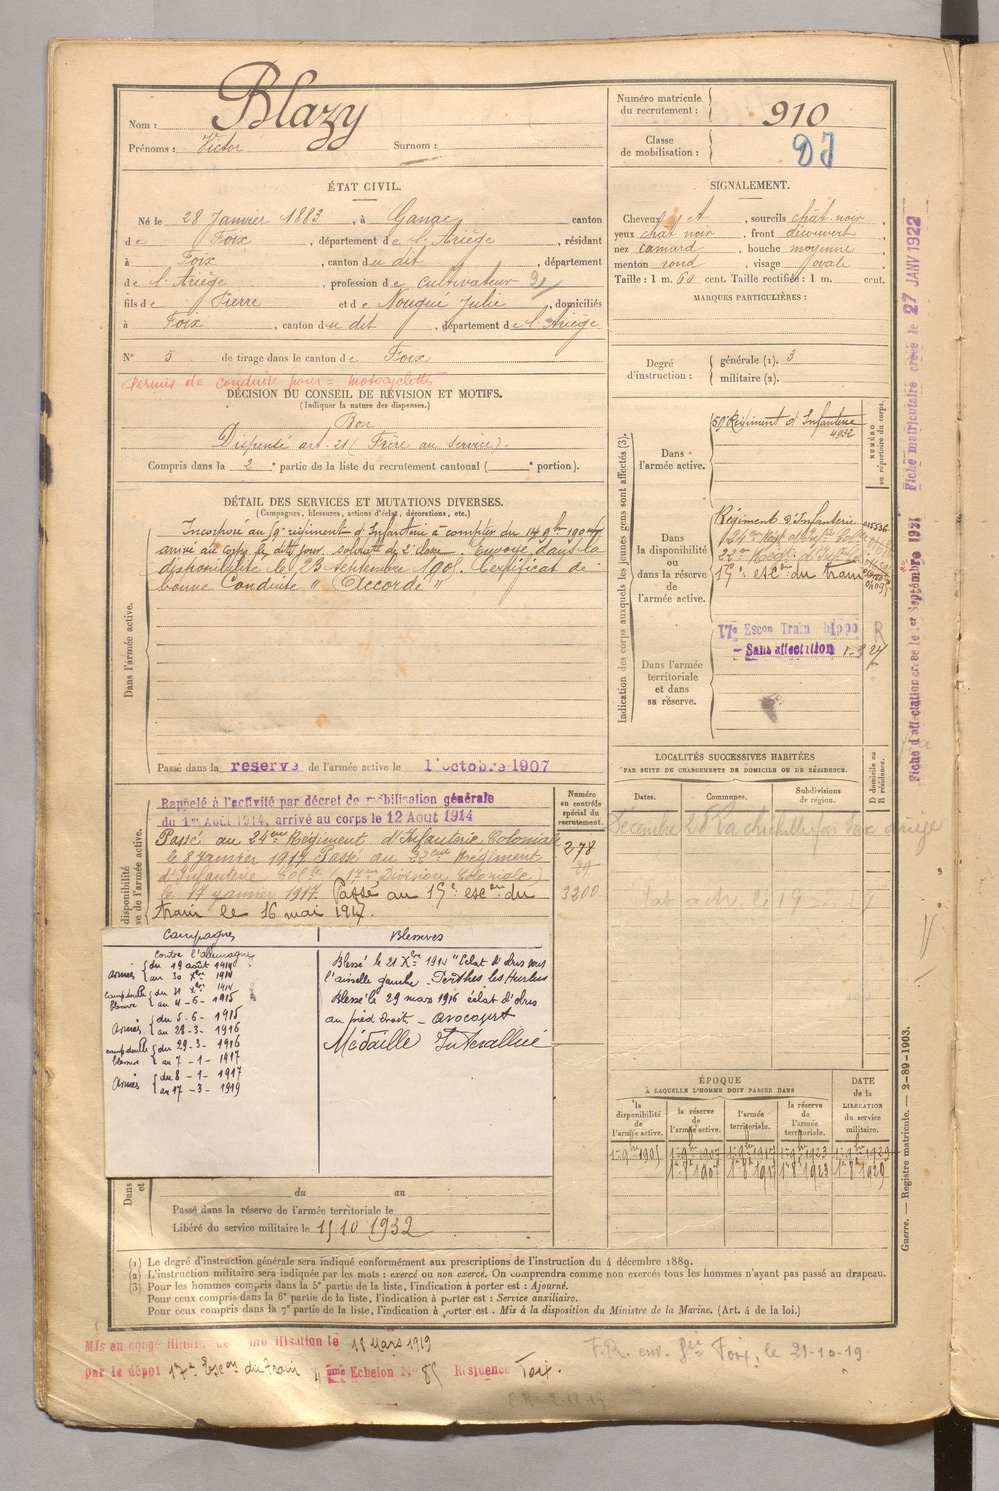 Nom : Blazy
Prénoms : Victor Surnom :
Numéro matricule du recrutement : 910
Classe de mobilisation :
ÉTAT CIVIL.
Né le 28 Janvier 1883, à Ganac canton
de Foix, département de l'Ariège, résidant
à Foix, canton du dit, département
de l'Ariège, profession de cultivateur
fils de Pierre et de Nougué Julie, domiciliés
à Foix, canton du dit, département de l'Ariège
N° 5 de tirage dans le canton de Foix
Permis de conduite pour = motocyclette
DÉCISION DU CONSEIL DE RÉVISION ET MOTIFS.
(Indiquer la nature des dispenses.)
Bon
Dispensé art. 21 (Frère au service).
Compris dans la 2e partie de la liste du recrutement cantonal ( e portion).
SIGNALEMENT.
Cheveux , sourcils chat. noir
yeux chat noir, front découvert
nez camard, bouche moyenne
menton rond, visage ovale
Taille : 1 m. 60 cent. Taille rectifiée : 1 m. cent.
MARQUES PARTICULIÈRES :
Degré d'instruction :
générale (1). 3
militaire (2).
DÉTAIL DES SERVICES ET MUTATIONS DIVERSES.
(Campagnes, blessures, actions d'éclat, décorations, etc.)
Dans l'armée active.
Incorporé au 59e régiment d'Infanterie à compter du 14 9bre 1904
arrivé au corps le dit jour, soldat de 2e classe. Envoyé dans la
disponibilité le 23 septembre 1905. Certificat de
bonne Conduite "Accordé"
Passé dans la reserve de l'armée active le 1 octobre 1907
Indication des corps auxquels les jeunes gens sont affectés (3).
NUMÉRO au répertoire du corps.
Dans l'armée active.
59 Régiment d'Infanterie
4932
Dans la disponibilité ou dans la réserve de l'armée active.
Régiment d'Infanterie
17e escon du train
Dans l'armée territoriale et dans sa réserve.
17e Escon Train hippo
Sans affectation
LOCALITÉS SUCCESSIVES HABITÉES
PAR SUITE DE CHANGEMENTS DE DOMICILE OU DE RÉSIDENCE.
Dates. Communes. Subdivisions de région. D domicile ou R résidence.
Rappelé à l'activité par décret de mobilisation générale
du 1er Août 1914, arrivé au corps le 12 Aout 1914
Passé au 24eme Régiment d'Infanterie Coloniale
le 8 janvier 1917 Passé au 22eme Régiment
d'Infanterie Colle (17eme Division Coloniale)
le 17 janvier 1917. Passé au 17e escon du
train le 16 mai 1917.
Numéro en contrôle spécial du recrutement.
278
3300
Campagnes
Contre l'Allemagne
Armées du 19 août 1914
au 30 Xbre 1914
camp double blessure du 31 Xbre 1914
au 4-6-1915
Armées du 5-6-1915
au 28-3-1916
camp double blessure du 29-3-1916
au 7-1-1917
Armées du 8-1-1917
au 17-3-1919
Blessures
Blessé le 21 Xbre 1914 "Eclat d'obus sous
l'aisselle gauche - Perthes les Hurlus
Blessé le 29 mars 1916 éclat d'obus
au pied droit - Avocourt
Médaille Interalliée
ÉPOQUE
À LAQUELLE L'HOMME DOIT PASSER DANS
la disponibilité de l'armée active.
la réserve de l'armée active.
l'armée territoriale.
la réserve de l'armée territoriale.
DATE de la LIBÉRATION du service militaire.
du au
Passé dans la réserve de l'armée territoriale le
Libéré du service militaire le 15 10 1932
(1) Le degré d'instruction générale sera indiqué conformément aux prescriptions de l'instruction du 4 décembre 1889.
(2) L'instruction militaire sera indiquée par les mots : exercé ou non exercé. On comprendra comme non exercés tous les hommes n'ayant pas passé au drapeau.
(3) Pour les hommes compris dans la 5e partie de la liste, l'indication à porter est : Ajourné.
Pour ceux compris dans la 6e partie de la liste, l'indication à porter est : Service auxiliaire.
Pour ceux compris dans la 7e partie de la liste, l'indication à porter est. Mis à la disposition du Ministre de la Marine. (Art. 4 de la loi.)
Mis en congé illimité de mobilisation le 18 Mars 1919
par le dépôt 17e Escon du train 4 ème Echelon N° 85 Résidence Foix.
F.R. env. Gie Foix, le 21-10-19
Guerre. — Registre matricule. — 2-89-1903.
Fiche d'affectation créée le 1er Septembre 1921 Fiche matriculaire créée le 27 JANV 1922